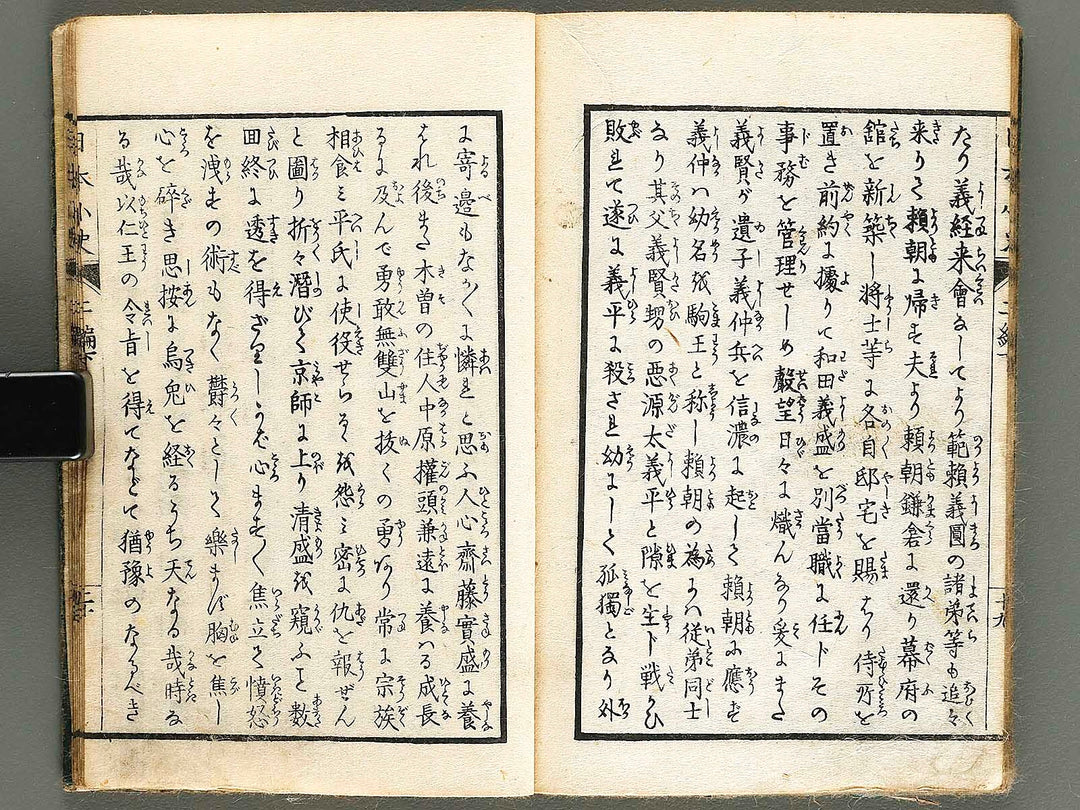 たり義経来會なしてより範頼義圓の諸弟等も追々
来りて頼朝に帰す夫より頼朝鎌倉に還り幕府の
舘を新築し將士等に各自邸宅を賜はり侍所を
置き前約に擾りて和田義盛を別當職に任じその
事務を管理せしめ聲望日々に熾んなり爰にまた
義賢が遺子義仲兵を信濃に起して頼朝に應ず
義仲ハ幼名を駒王と称し頼朝の為にハ従弟同士
なり其父義賢甥の悪源太義平と隙を生じ戦ひ
敗れて遂に義平に殺され幼にして孤獨となり外
に寄邊もなかりしに憐れと思ふ人心齋藤實盛に養
はれ後また木曽の住人中原權頭兼遠に養ハる成長
るに及んで勇敢無雙山を抜くの勇あり常に宗族
相食ミ平氏に使役せらるゝを怨ミ密に仇を報ぜん
と圖り折々潛びて京師に上り清盛を窺ふこと数
回終に透を得ざりしかば心ますく焦立て憤怒
を洩すの術もなく欝々として樂まず胸を焦し
心を碎き思按に烏兎を経るうち天なる哉時な
る哉以仁王の令旨を得てなどて猶豫のなるべき
日本小史
二編下
二十
十九